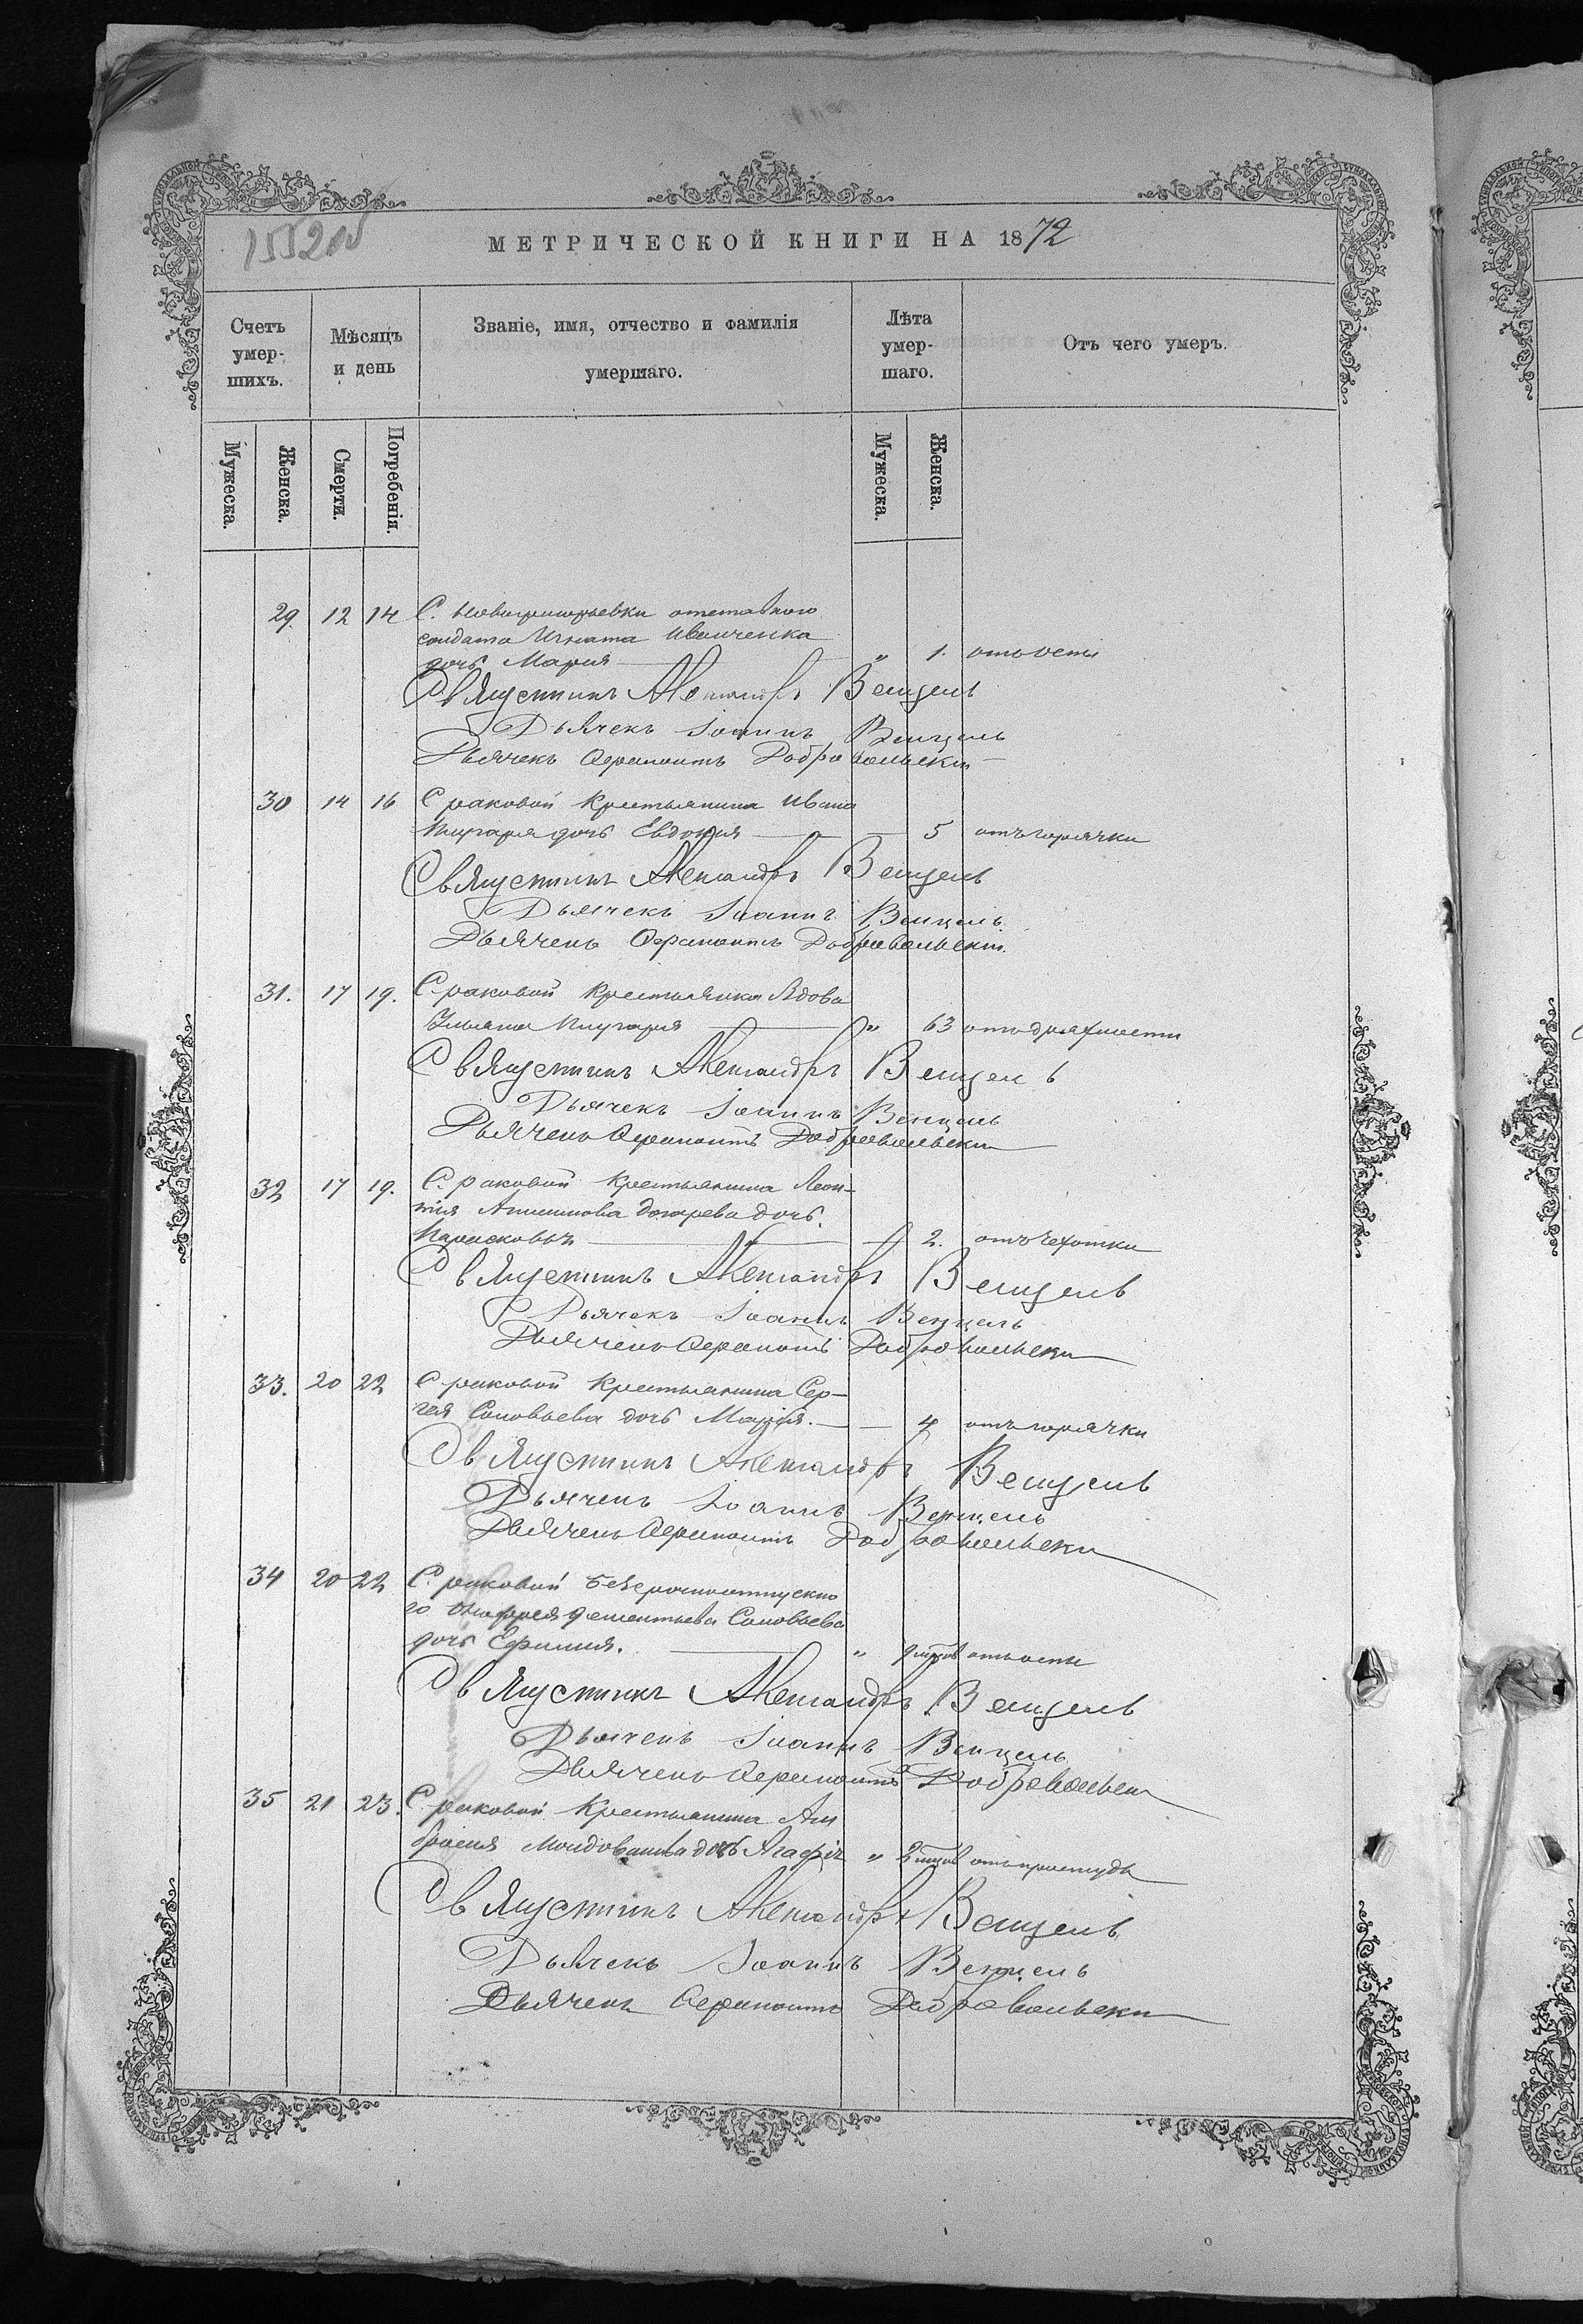 1552 об
МЕТРИЧЕСКОЙ КНИГИ НА 1872
Счетъ умершихъ.
Мѣсяцъ и день
Званіе, имя, отчество и фамилія умершаго.
Лѣта умершаго.
Отъ чего умеръ.
Мужеска. Женска. Смерти. Погребенія. Мужеска. Женска.
29. 12 14 С. Новогригорьевки отставного
солдата Игната Иванченка
дочь Мария — " 1. отъ оспы
Священникъ Александръ Венцель
Дьячекъ Іоаннъ Венцель
Дьячекъ Ферапонтъ Добровольски
30 14 16 С раковой Крестьянина Ивана
дочь Евдокия — — 5 отъ горячки
Священникъ Александръ Венцель
Дьячекъ Іоаннъ Венцель.
Дьячекъ Ферапонтъ Добровольски.
31. 17 19. С. раковой Крестьянка Вдова
Ульяна — " 63 отъ дряхлости
Священникъ Александръ Венцель
Дьячекъ Іоаннъ Венцель
Дьячекъ Ферапонтъ Добровольски
32 17 19. С. раковой Крестьянина Леон-
тия дочь.
— 2. отъ чехотки
Священникъ Александръ Венцель
Дьячекъ Іоаннъ Венцель
Дьячекъ Ферапонтъ Добровольски
33. 20 22 С раковой Крестьянина Сер-
гея Соловьева дочь Мария. — — 4 отъ горячки
Священникъ Александръ Венцель
Дьячекъ Іоаннъ Венцель
Дьячекъ Ферапонтъ Добровольски
34 20 22 С. раковой безсрочноотпускно
го Онофрея Дементьева Соловьева
дочь Ефимия. — " отъ оспы
Священникъ Александръ Венцель
Дьячекъ Іоаннъ Венцель
Дьячекъ Ферапонтъ Добровольски
35 21 23. С раковой Крестьянина Ам
бросия Молдована дочь Агафия " отъ простуды
Священникъ Александръ Венцель
Дьячекъ Іоаннъ Венцель
Дьячекъ Ферапонтъ Добровольски